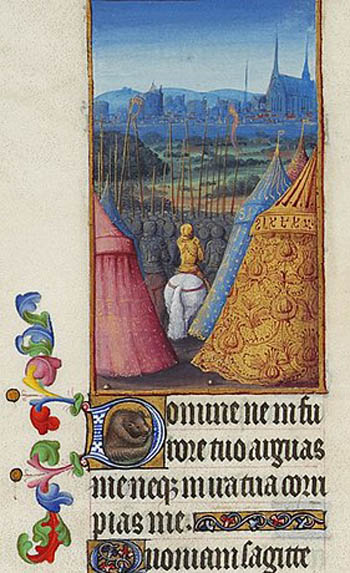 Domine ne in fu
rore tuo arguas
me neqꝫ in ira tua corri
pias me.
Quoniam sagitte